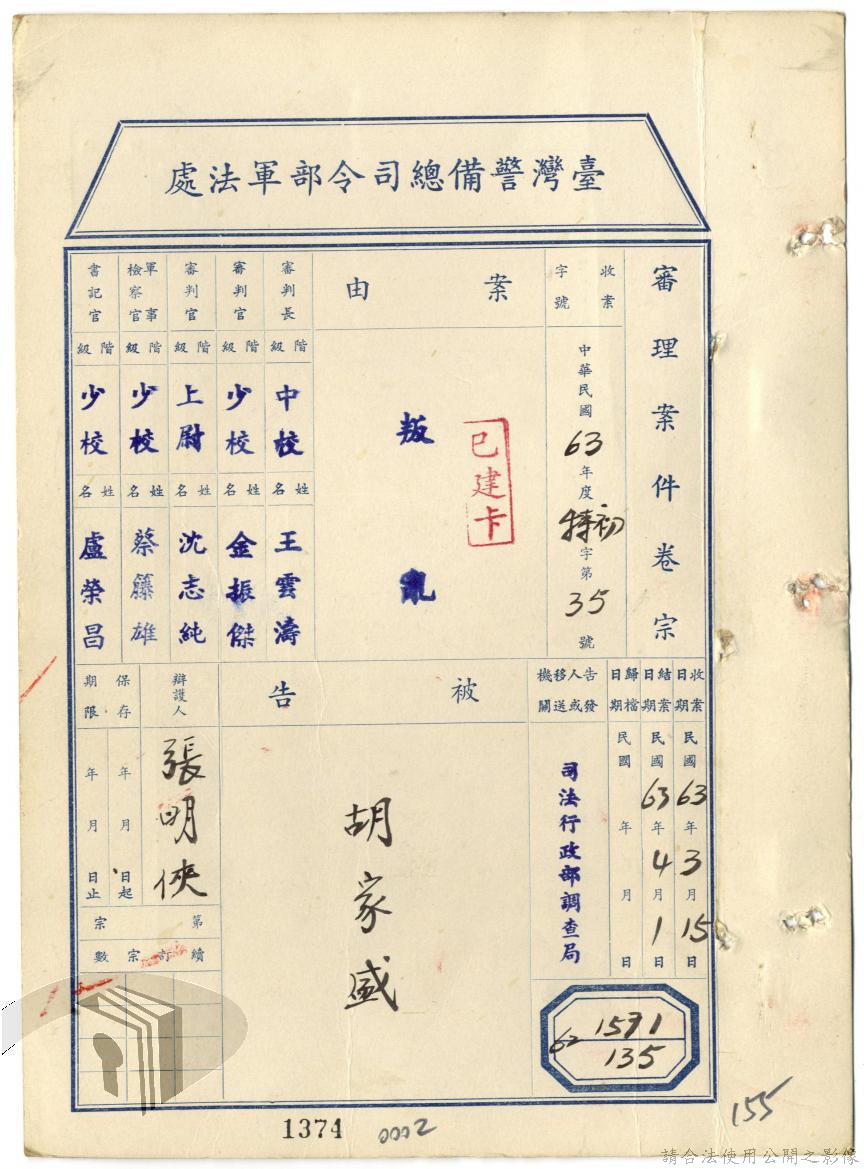 臺灣警備總司令部軍法處
審理案件卷宗
收案字號
中華民國63年度特初字第35號
案由
叛亂
已建卡
審判長
階級
中校
姓名
王雲濤
審判官
階級
少校
姓名
金振傑
審判官
階級
上尉
姓名
沈志純
軍事檢察官
階級
少校
姓名
蔡籐雄
書記官
階級
少校
姓名
盧榮昌
收案日期
民國63年3月15日
結案日期
民國63年4月1日
歸檔日期
民國 年 月 日
告發人或移送機關
司法行政部調查局
被告
胡家盛
辯護人
張明俠
保存期限
年 月 日起
年 月 日止
第 宗
續訂宗數
62 1571
135
1374
0002
155
請合法使用公開之影像